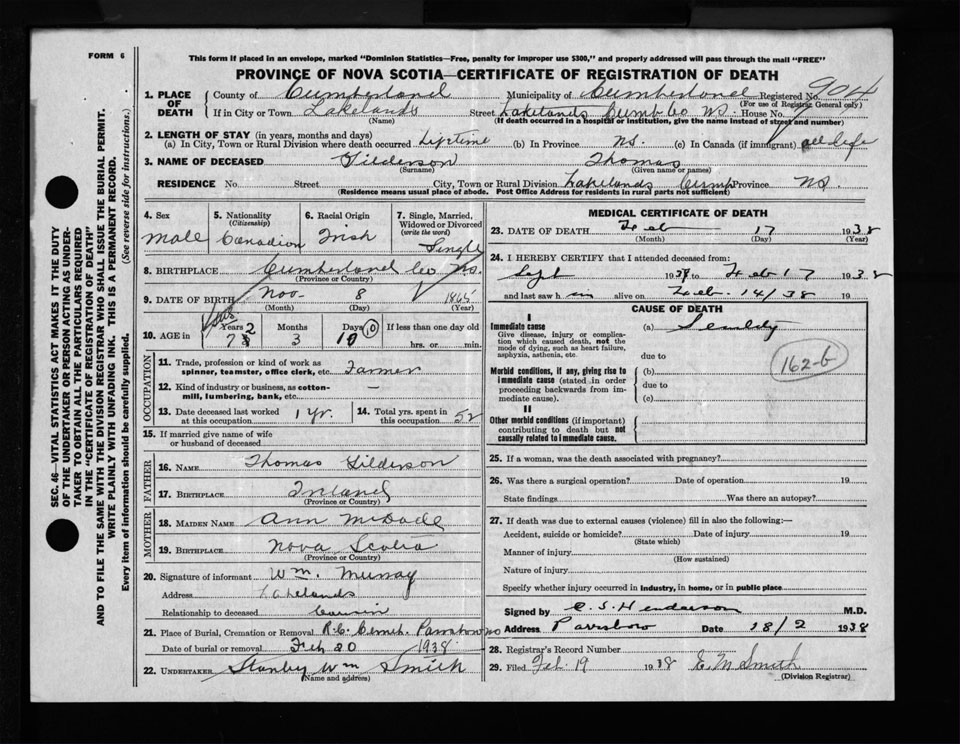 FORM 6
This form if placed in an envelope, marked "Dominion Statistics—Free, penalty for improper use $300," and properly addressed will pass through the mail "FREE"
PROVINCE OF NOVA SCOTIA—CERTIFICATE OF REGISTRATION OF DEATH
1. PLACE OF DEATH County of Cumberland Municipality of Cumberland Registered No. 904
(For use of Registrar General only)
If in City or Town Lakelands Street Lakelands Cumb Co NS. House No.
(Name) (If death occurred in a hospital or institution, give the name instead of street and number)
2. LENGTH OF STAY (in years, months and days)
(a) In City, Town or Rural Division where death occurred Lifetime (b) In Province NS. (c) In Canada (if immigrant) all life
3. NAME OF DECEASED Gilderson Thomas
(Surname) (Given name or names)
RESIDENCE No. Street City, Town or Rural Division Lakelands Cumb Province NS.
(Residence means usual place of abode. Post Office Address for residents in rural parts not sufficient)
4. Sex Male
5. Nationality (Citizenship) Canadian
6. Racial Origin Irish
7. Single, Married, Widowed or Divorced (write the word) Single
8. BIRTHPLACE Cumberland Co NS.
(Province or Country)
9. DATE OF BIRTH Nov 8 1865
(Month) (Day) (Year)
10. AGE in Years 72 Months 3 Days 10 (10) If less than one day old
hrs. or min.
OCCUPATION
11. Trade, profession or kind of work as spinner, teamster, office clerk, etc. Farmer
12. Kind of industry or business, as cotton-mill, lumbering, bank, etc. —
13. Date deceased last worked at this occupation 1 yr.
14. Total yrs. spent in this occupation 52
15. If married give name of wife or husband of deceased
FATHER
16. NAME Thomas Gilderson
17. BIRTHPLACE Ireland
(Province or Country)
MOTHER
18. MAIDEN NAME Ann McDade
19. BIRTHPLACE Nova Scotia
(Province or Country)
20. Signature of informant Wm. Murray
Address Lakelands
Relationship to deceased Cousin
21. Place of Burial, Cremation or Removal R.C. Cemet. Parrsboro NS
Date of burial or removal Feb 20 1938
22. UNDERTAKER Stanley Wm Smith
(Name and address)
MEDICAL CERTIFICATE OF DEATH
23. DATE OF DEATH Feb 17 1938
(Month) (Day) (Year)
24. I HEREBY CERTIFY that I attended deceased from:
Sept 1937 to Feb 17 1938
and last saw him alive on Feb. 14/38 19
CAUSE OF DEATH
I
Immediate cause
Give disease, injury or complication which caused death, not the mode of dying, such as heart failure, asphyxia, asthenia, etc.
(a) Senility
due to
162-b
Morbid conditions, if any, giving rise to immediate cause (stated in order proceeding backwards from immediate cause).
(b)
due to
(c)
II
Other morbid conditions (if important) contributing to death but not causally related to immediate cause.
25. If a woman, was the death associated with pregnancy?
26. Was there a surgical operation? Date of operation 19
State findings Was there an autopsy?
27. If death was due to external causes (violence) fill in also the following:—
Accident, suicide or homicide? Date of injury 19
(State which)
Manner of injury
(How sustained)
Nature of injury
Specify whether injury occurred in industry, in home, or in public place
Signed by C. S. Henderson M.D.
Address Parrsboro Date 18/2 1938
28. Registrar's Record Number
29. Filed Feb. 19 1938 E N Smith
(Division Registrar)
SEC. 46—VITAL STATISTICS ACT MAKES IT THE DUTY
OF THE UNDERTAKER OR PERSON ACTING AS UNDER-
TAKER TO OBTAIN ALL THE PARTICULARS REQUIRED
IN THE "CERTIFICATE OF REGISTRATION OF DEATH"
AND TO FILE THE SAME WITH THE DIVISION REGISTRAR WHO SHALL ISSUE THE BURIAL PERMIT.
WRITE PLAINLY WITH UNFADING INK. THIS IS A PERMANENT RECORD.
Every item of information should be carefully supplied. (See reverse side for instructions.)